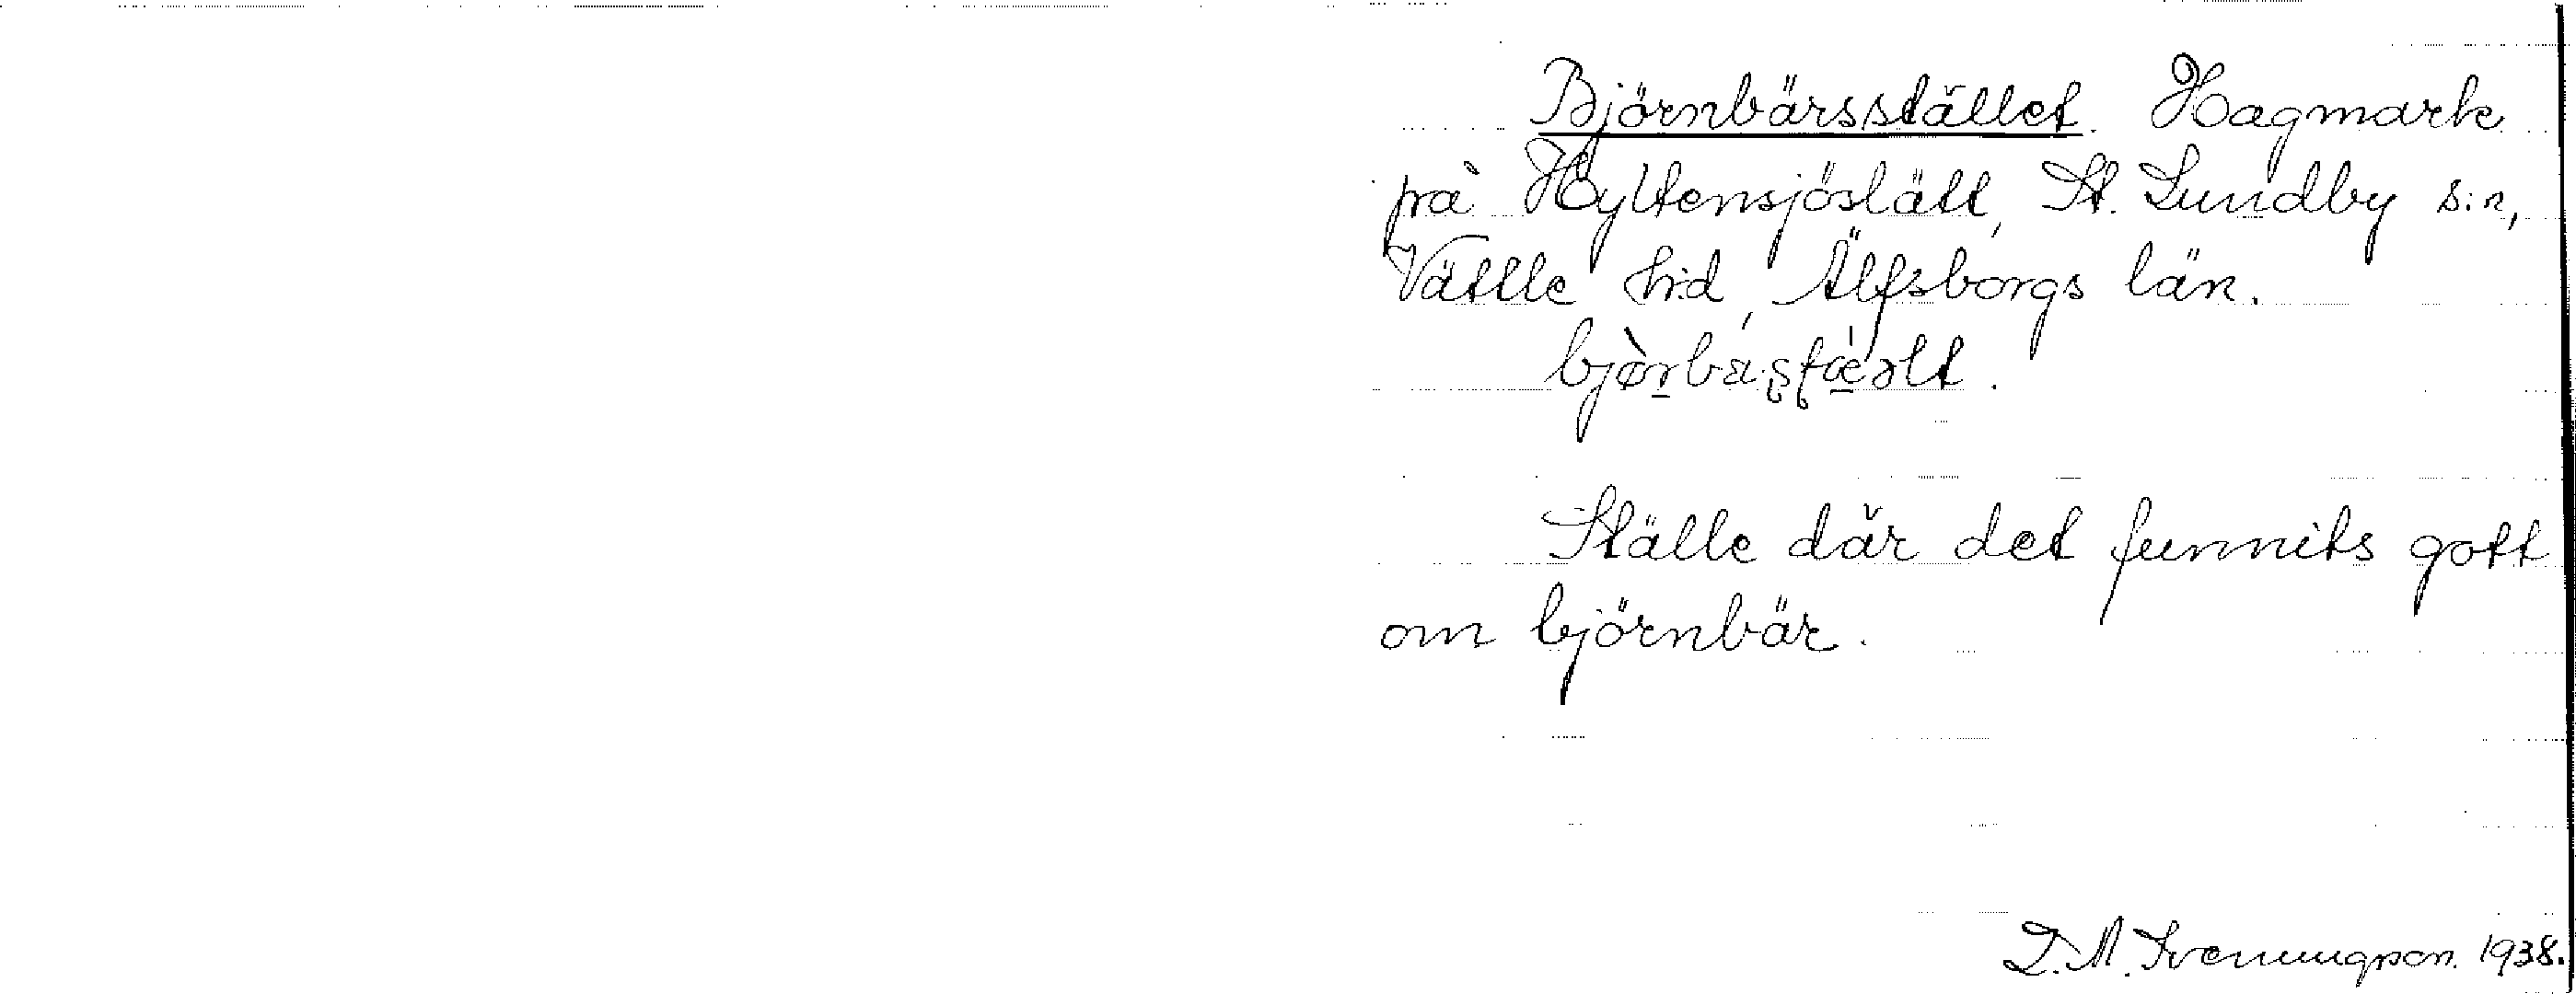 Björnbärsstället. Hagmark
på Hyltensjöslätt, St. Lundby s:n,
Vättle h:d, Älfsborgs län.
Ställe där det funnits gott
om björnbär.
L. M. Svenungsson. 1938.